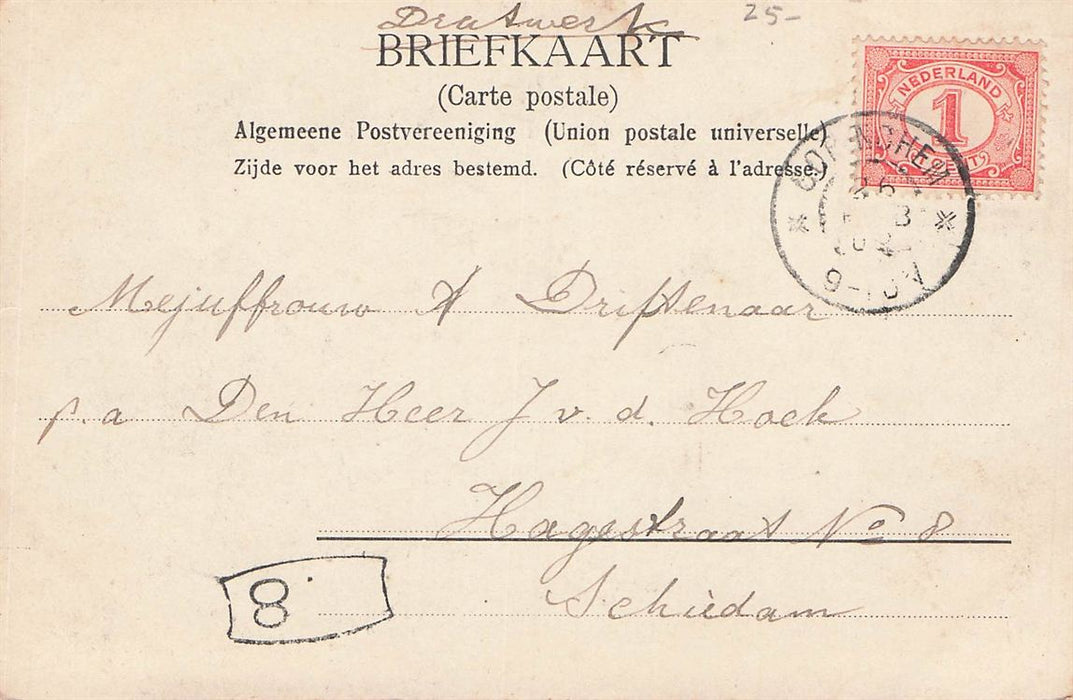 25-
Drukwerk
BRIEFKAART
(Carte postale)
Algemeene Postvereeniging (Union postale universelle)
Zijde voor het adres bestemd. (Côté réservé à l'adresse)
NEDERLAND
1
CENT
GORINCHEM
9-10V
Mejuffrouw A Driftenaar
p.a Den Heer J v. d. Hoek
Hagestraat No 8
Schiedam
8